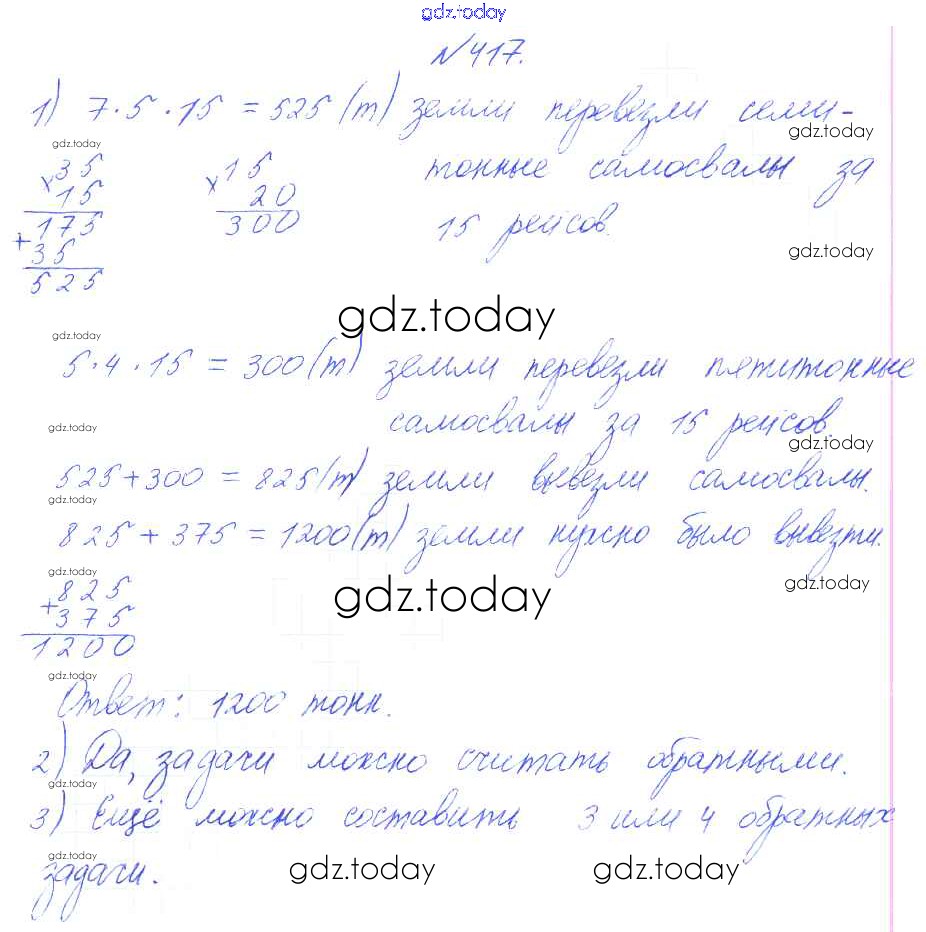 gdz.today
№417.
1) 7·5·15 = 525 (т) земли перевезли семи-
gdz.today
gdz.today
×35 ×15 тонные самосвалы за
15 20
175 300 15 рейсов.
+35
gdz.today
525
gdz.today
gdz.today
5·4·15 = 300 (т) земли перевезли пятитонные
самосвалы за 15 рейсов
gdz.today
gdz.today
525+300 = 825 (т) земли вывезли самосвалы.
gdz.today
825 + 375 = 1200 (т) земли нужно было вывезти.
gdz.today
gdz.today
825
gdz.today
+375
1200
gdz.today
Ответ: 1200 тонн.
2) Да, задачи можно считать обратными.
gdz.today
3) Ещё можно составить 3 или 4 обратных
gdz.today
задачи.
gdz.today gdz.today